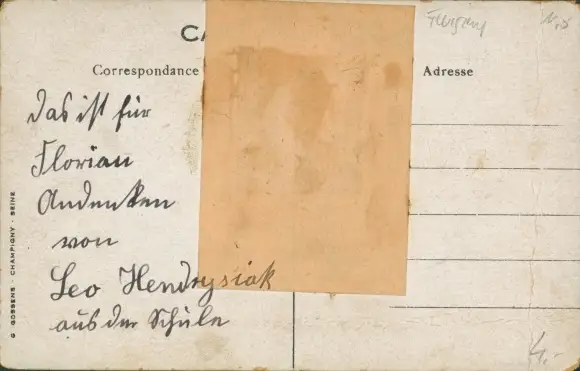 CA
Correspondance
Adresse
Das ist für
Florian
Andenken
von
Leo Hendrysiak
aus der Schule
G GOSSENS - CHAMPIGNY - SEINE
4.-